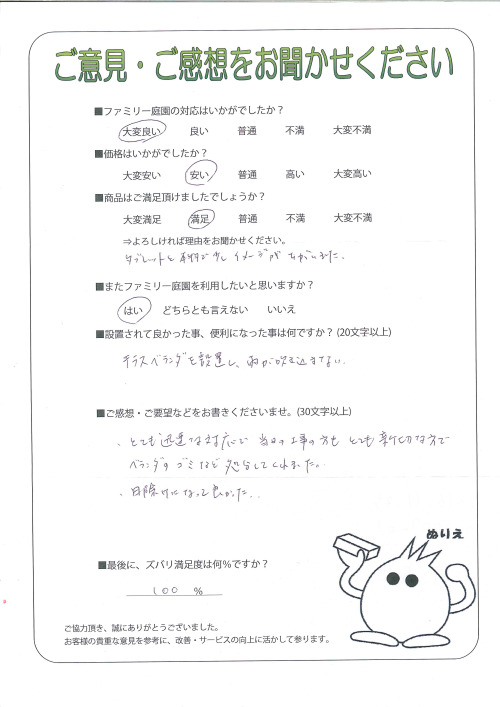 ご意見・ご感想をお聞かせください
■ファミリー庭園の対応はいかがでしたか？
大変良い 良い 普通 不満 大変不満
■価格はいかがでしたか？
大変安い 安い 普通 高い 大変高い
■商品はご満足頂けましたでしょうか？
大変満足 満足 普通 不満 大変不満
⇒よろしければ理由をお聞かせください。
タブレットと 少しイメージが ちがいました。
■またファミリー庭園を利用したいと思いますか？
はい どちらとも言えない いいえ
■設置されて良かった事、便利になった事は何ですか？(20文字以上)
テラスベランダを設置し、雨が吹き込まない.
■ご感想・ご要望などをお書きくださいませ。(30文字以上)
、とても迅速な対応で 当日の工事の方も とても親切な方で
ベランダのゴミなど 処分してくれました。
、日除けになって良かった.
ぬりえ
■最後に、ズバリ満足度は何％ですか？
100 %
ご協力頂き、誠にありがとうございました。
お客様の貴重な意見を参考に、改善・サービスの向上に活かして参ります。